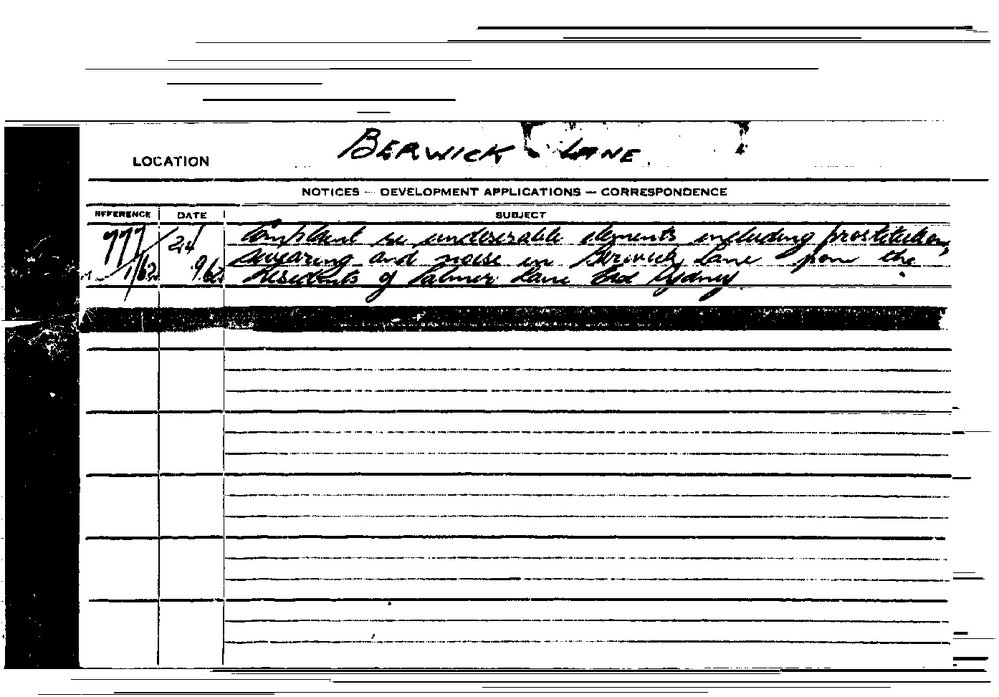 LOCATION BERWICK LANE
NOTICES — DEVELOPMENT APPLICATIONS — CORRESPONDENCE
REFERENCE DATE SUBJECT
777/ 24/ Complaint re undesirable elements including prostitution,
/62 9/62 swearing and noise in Berwick Lane from the
residents of Palmer Lane East Sydney.